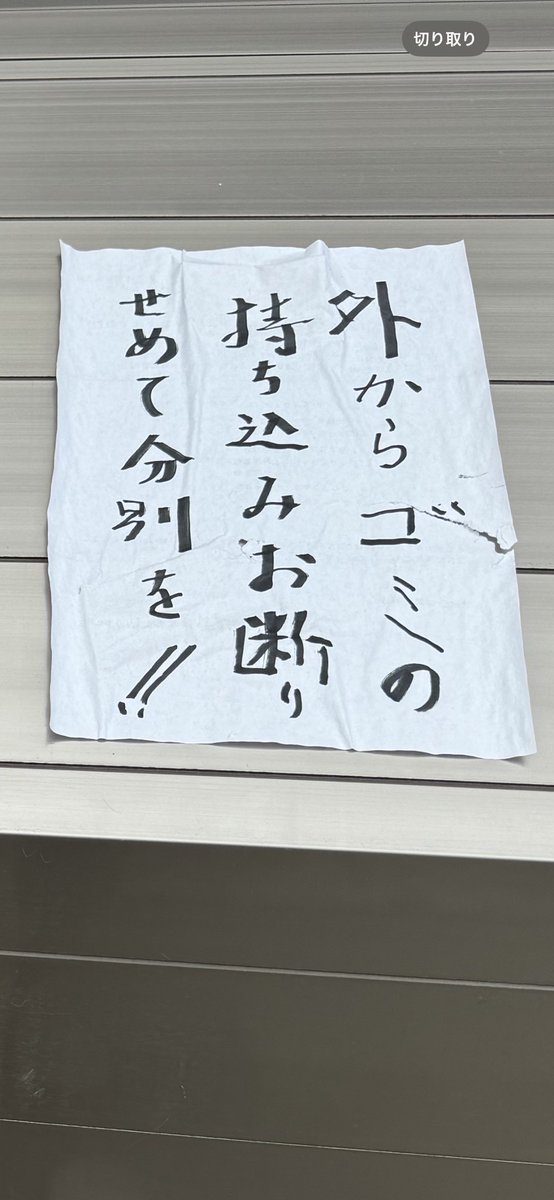 切り取り
外からゴミの
持ち込みお断り
せめて分別を!!